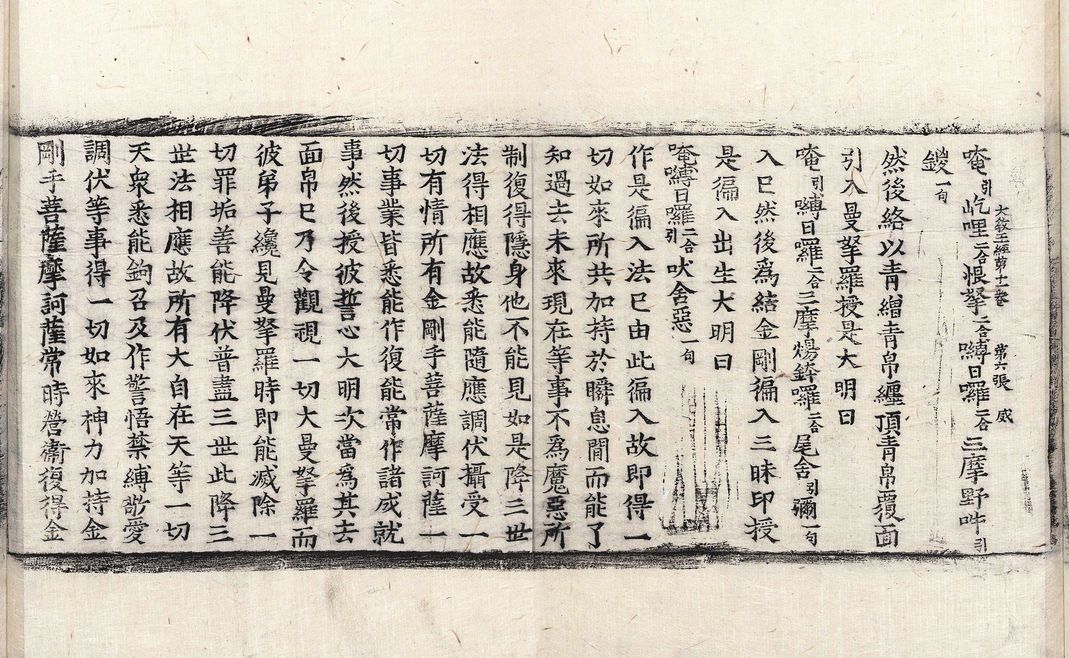 大教王經第十二卷 第六張 威
唵引屹哩二合恨拏二合嚩日囉二合三摩野吽引
鑁一句
然後絡以青繒青帛纏頂青帛覆面
引入曼拏羅授是大明曰
唵引嚩日囉二合三摩煬鉢囉二合尾舍引彌一句
入已然後爲結金剛徧入三昧印授
是徧入出生大明曰
唵嚩日囉二合引吠舍惡一句
作是徧入法已由此徧入故即得一
切如來所共加持於瞬息間而能了
知過去未來現在等事不爲魔惡所
制復得隱身他不能見如是降三世
法得相應故悉能隨應調伏攝受一
切有情所有金剛手菩薩摩訶薩一
切事業皆悉能作復能常作諸成就
事然後授彼誓心大明次當爲其去
面帛已乃令觀視一切大曼拏羅而
彼弟子纔見曼拏羅時即能滅除一
切罪垢善能降伏普盡三世此降三
世法相應故所有大自在天等一切
天衆悉能鉤召及作警悟禁縛敬愛
調伏等事得一切如來神力加持金
剛手菩薩摩訶薩常時營衛復得金